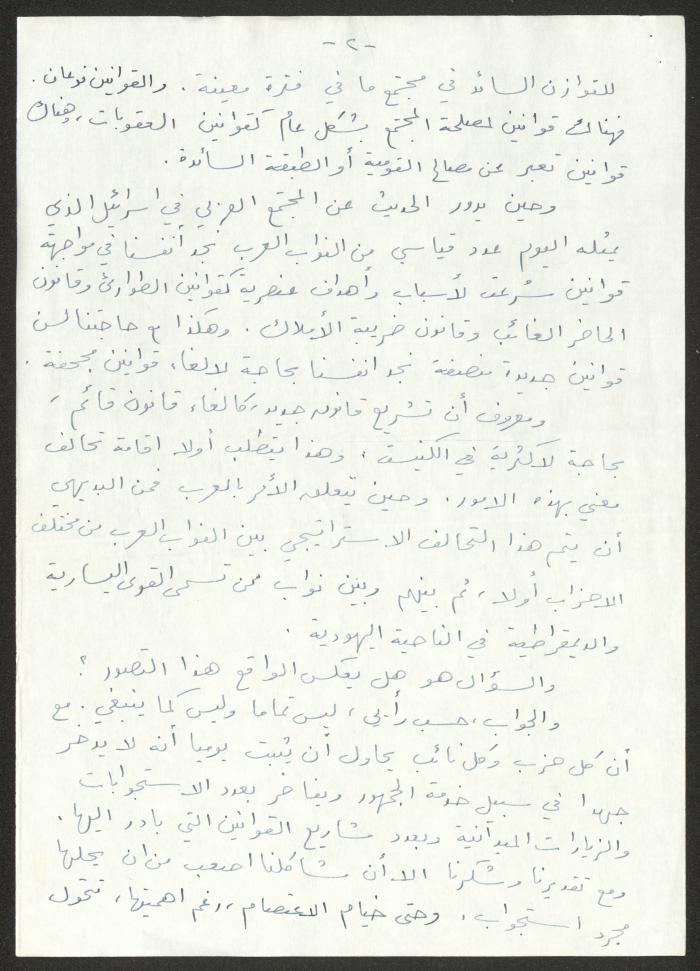 -٢-
للتوازن السائد في مجتمع ما في فترة معينة. والقوانين نوعان.
فهناك قوانين لمصلحة المجتمع بشكل عام كقوانين العقوبات، وهناك
قوانين تعبر عن مصالح القومية أو الطبقة السائدة.
وحين يدور الحديث عن المجتمع العربي في اسرائيل الذي
يمثله اليوم عدد قياسي من النواب العرب نجد أنفسنا في مواجهة
قوانين سُرعت لأسباب وأهداف عنصرية كقوانين الطوارئ وقانون
الحاضر الغائب وقانون ضريبة الأملاك. وهكذا مع حاجتنا لسن
قوانين جديدة منصفة نجد انفسنا بحاجة لالغاء قوانين مجحفة.
ومعروف أن تشريع قانون جديد، كالغاء قانون قائم،
بحاجة لاكثرية في الكنيست، وهذا يتطلب أولا اقامة تحالف
معني بهذه الامور. وحين يتعلق الأمر بالعرب فمن البديهي
أن يتم هذا التحالف الاستراتيجي بين النواب العرب من مختلف
الاحزاب أولا، ثم بينهم وبين نواب ممن تسمى القوى اليسارية
والديمقراطية في الناحية اليهودية.
والسؤال هو هل يعكس الواقع هذا التصور؟
والجواب، حسب رأيي، ليس تماما وليس كما ينبغي. مع
أن كل حزب وكل نائب يحاول أن يُثبت يوميا أنه لا يدخر
جهدا في سبيل خدمة الجمهور ويفاخر بعدد الاستجوابات
والزيارات الميدانية وبعدد مشاريع القوانين التي بادر اليها.
ومع تقديرنا وشكرنا الا أن مشاكلنا اصعب من ان يحلها
مجرد استجواب. وحتى خيام الاعتصام، رغم اهميتها، تتحول